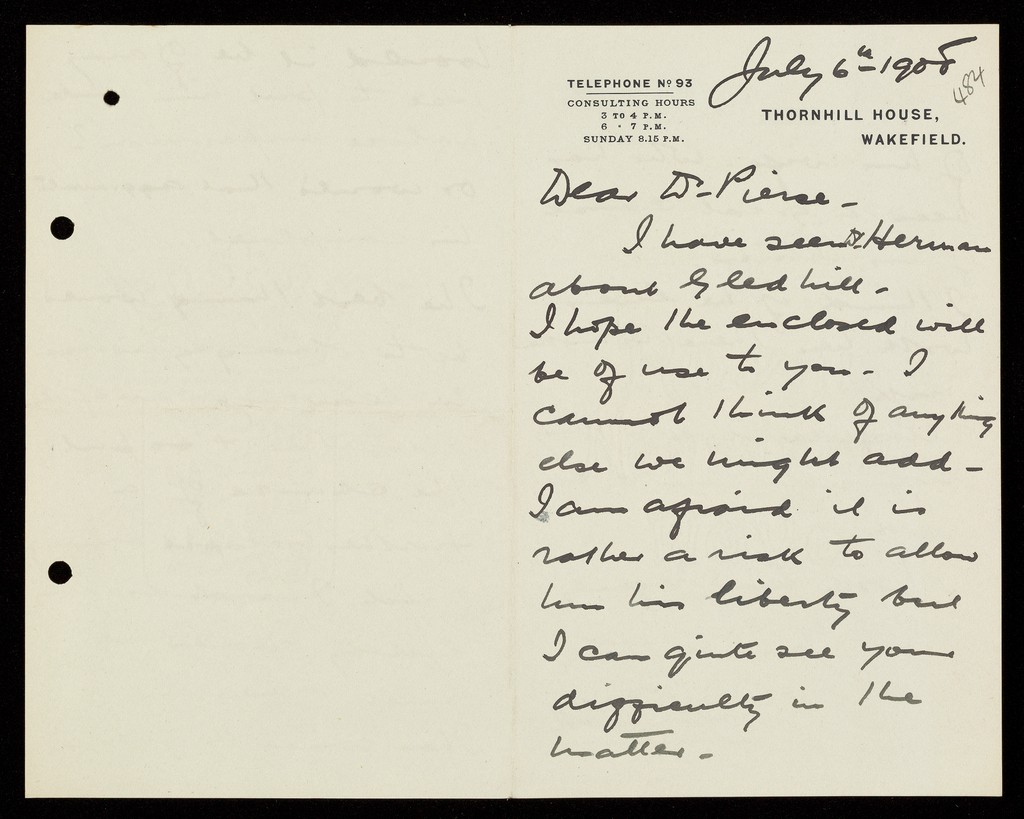 July 6th 1908
484
TELEPHONE No 93
CONSULTING HOURS
3 TO 4 P.M.
6 - 7 P.M.
SUNDAY 8.15 P.M.
THORNHILL HOUSE,
WAKEFIELD.
Dear Dr Pierse -
I have seen Dr Herman
about Gledhill -
I hope the enclosed will
be of use to you - I
cannot think of anything
else we might add -
I am afraid it is
rather a risk to allow
him his liberty but
I can quite see your
difficulty in the
matter -